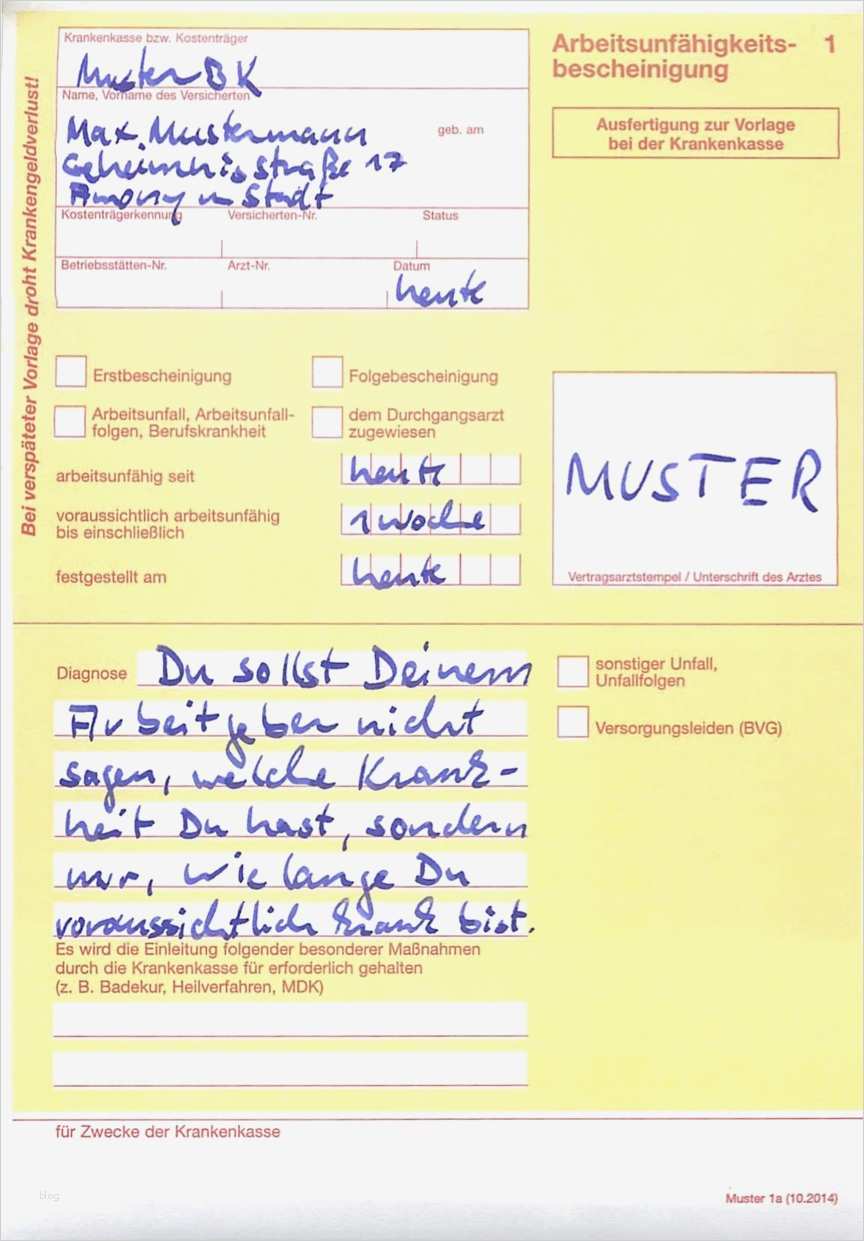 Krankenkasse bzw. Kostenträger
Muster BK
Name, Vorname des Versicherten
Max Mustermann
geb. am
Geheimnisstraße 17
Anonym Stadt
Kostenträgerkennung Versicherten-Nr. Status
Betriebsstätten-Nr. Arzt-Nr. Datum
heute
Arbeitsunfähigkeits- 1
bescheinigung
Ausfertigung zur Vorlage
bei der Krankenkasse
Bei verspäteter Vorlage droht Krankengeldverlust!
Erstbescheinigung
Folgebescheinigung
Arbeitsunfall, Arbeitsunfall-
folgen, Berufskrankheit
dem Durchgangsarzt
zugewiesen
arbeitsunfähig seit heute
voraussichtlich arbeitsunfähig
bis einschließlich
1 Woche
festgestellt am heute
MUSTER
Vertragsarztstempel / Unterschrift des Arztes
Diagnose Du sollst Deinem
Arbeitgeber nicht
sagen, welche Krank-
heit Du hast, sondern
nur, wie lange Du
voraussichtlich krank bist.
sonstiger Unfall,
Unfallfolgen
Versorgungsleiden (BVG)
Es wird die Einleitung folgender besonderer Maßnahmen
durch die Krankenkasse für erforderlich gehalten
(z. B. Badekur, Heilverfahren, MDK)
für Zwecke der Krankenkasse
blog
Muster 1a (10.2014)